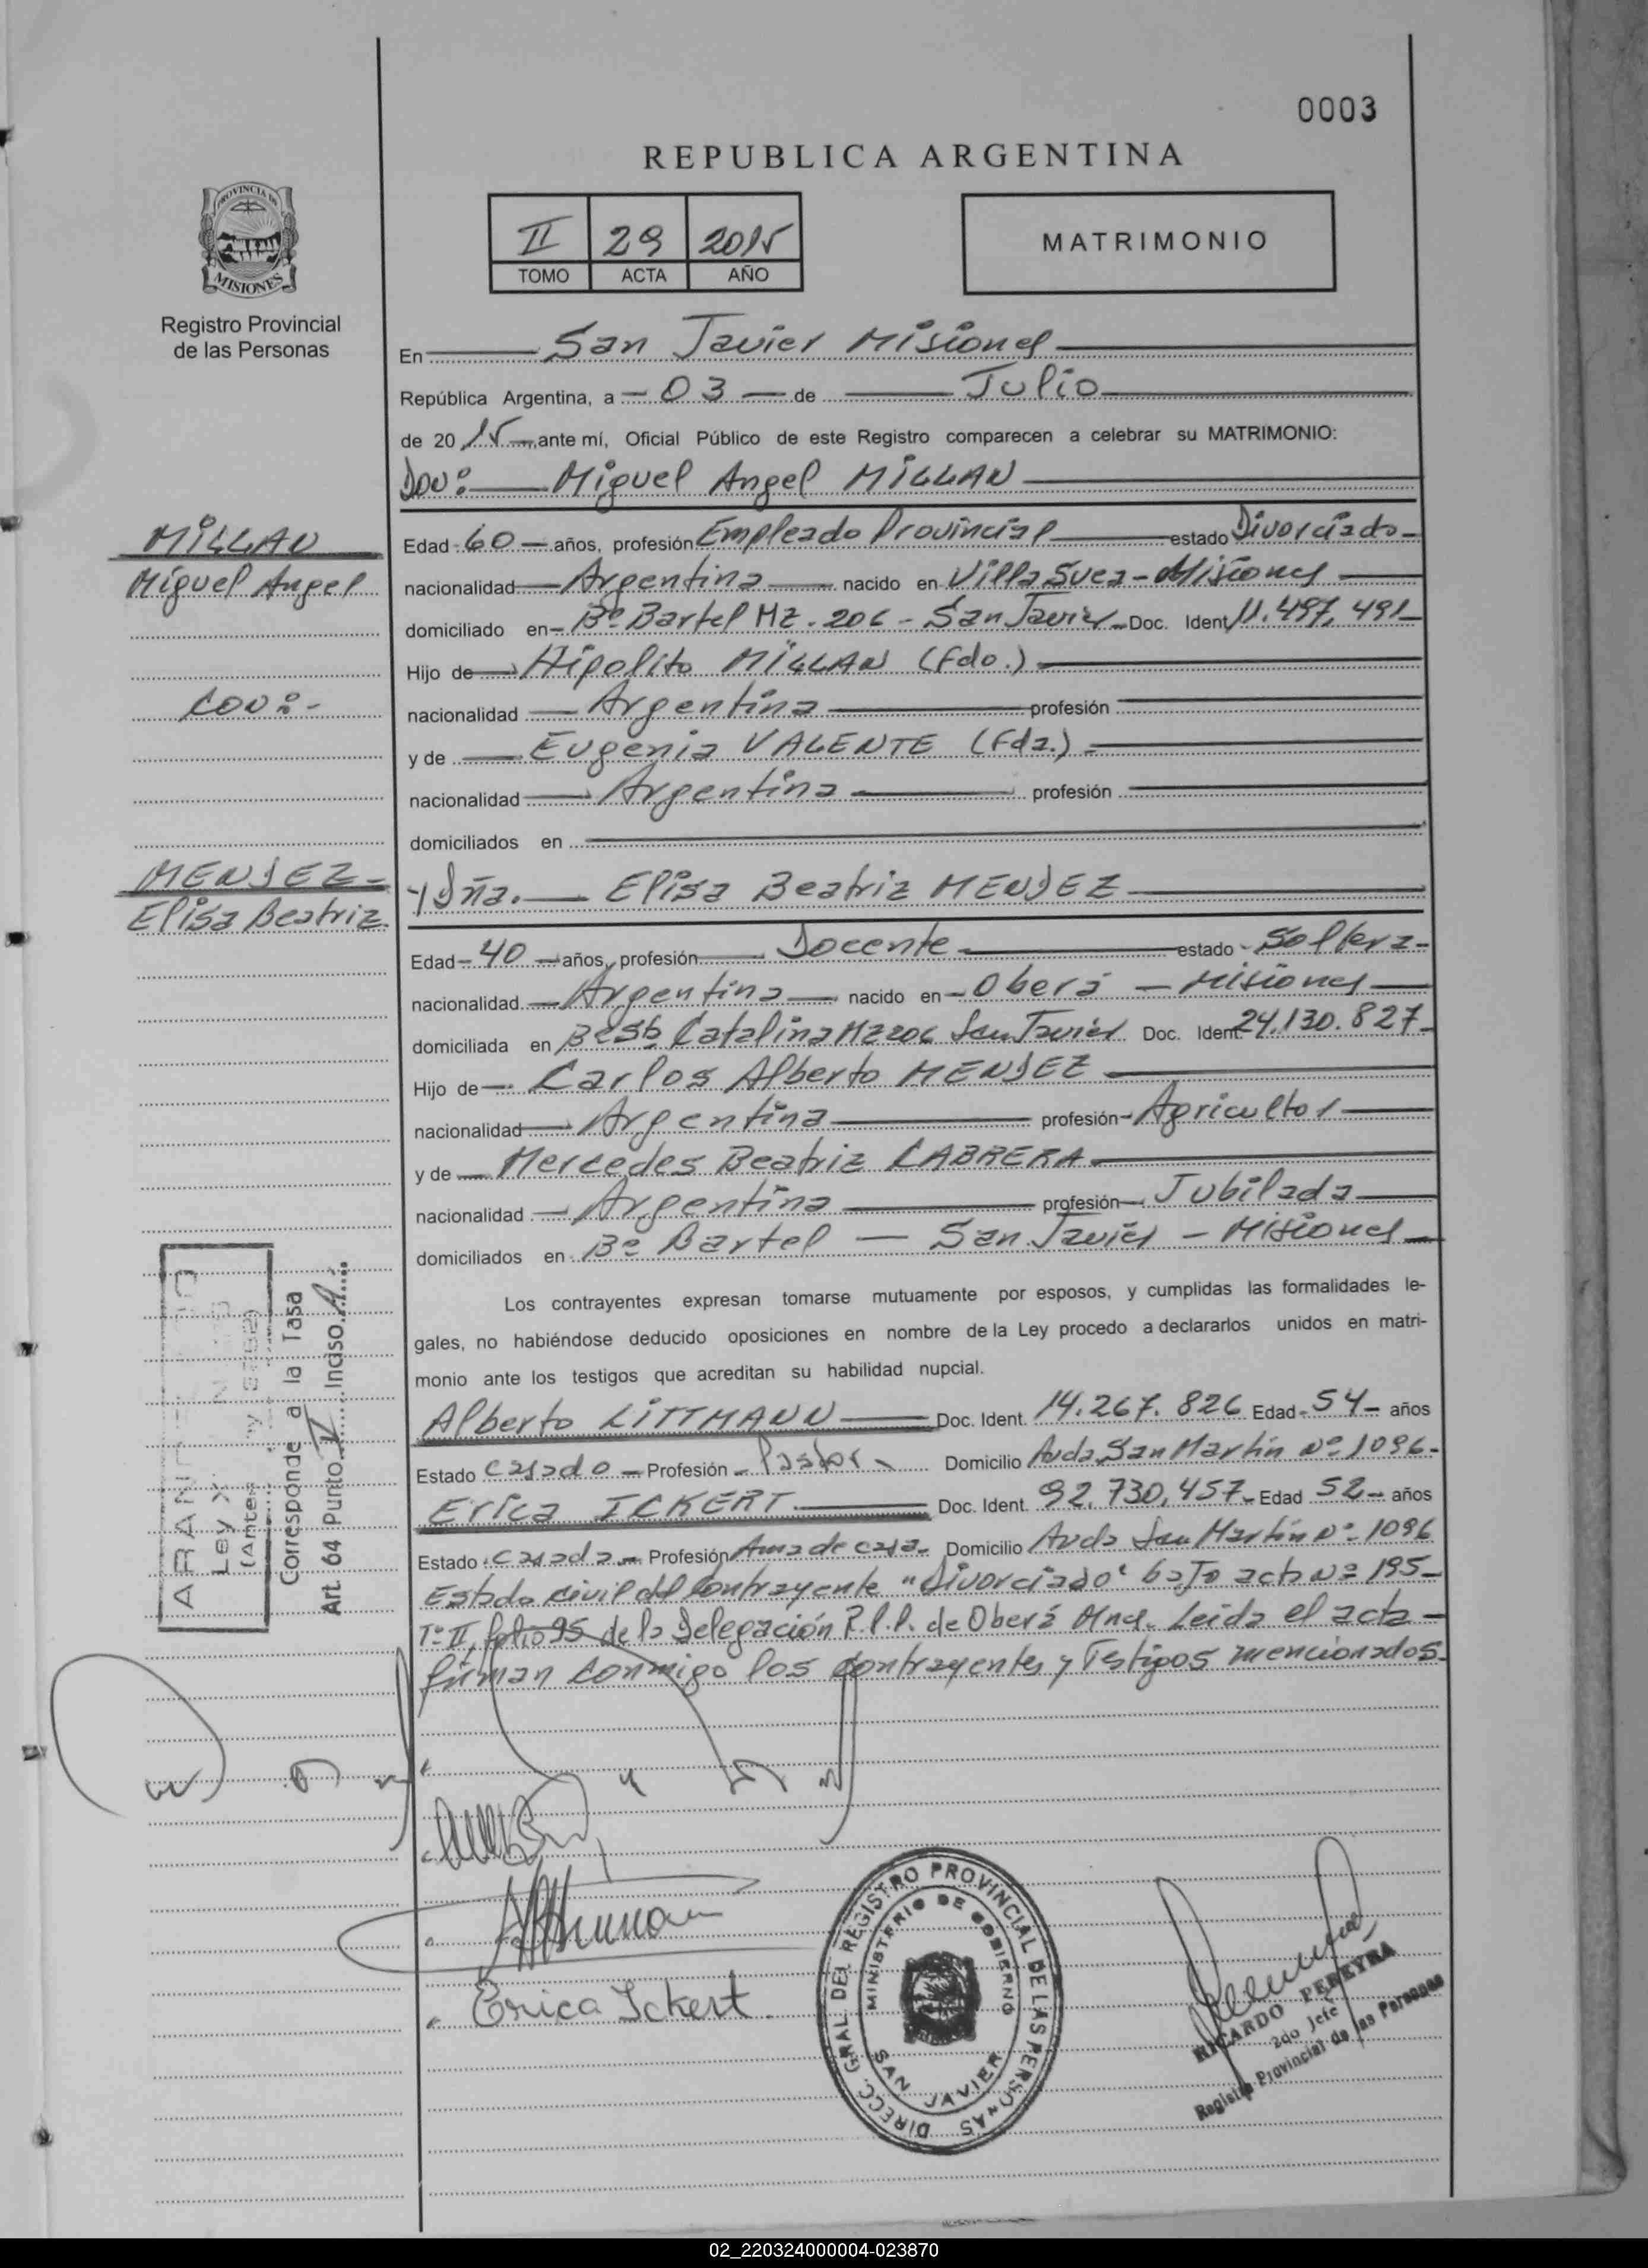 0003
REPUBLICA ARGENTINA
PROVINCIA DE
MISIONES
Registro Provincial
de las Personas
II 29 2015
TOMO ACTA AÑO
MATRIMONIO
En San Javier Misiones
República Argentina, a 03 de Julio
de 2015 ante mí, Oficial Público de este Registro comparecen a celebrar su MATRIMONIO:
Don: Miguel Angel MILLAN
MILLAN
Miguel Angel
con:-
MENDEZ-
Elisa Beatriz
Edad 60 años, profesión Empleado Provincial estado Divorciado
nacionalidad Argentina nacido en Villa Svea - Misiones
domiciliado en Bº Bartel Mz. 206 - San Javier Doc. Ident 11.497.491
Hijo de Hipolito MILLAN (Fdo.)
nacionalidad Argentina profesión
y de Eugenia VALENTE (Fda.)
nacionalidad Argentina profesión
domiciliados en
y Dña. Elisa Beatriz MENDEZ
Edad 40 años, profesión Docente estado Soltera
nacionalidad Argentina nacido en Oberá - Misiones
domiciliada en Catalina Mz 206 San Javier Doc. Ident 24.130.827
Hijo de Carlos Alberto MENDEZ
nacionalidad Argentina profesión Agricultor
y de Mercedes Beatriz CABRERA
nacionalidad Argentina profesión Jubilada
domiciliados en Bº Bartel - San Javier - Misiones
Los contrayentes expresan tomarse mutuamente por esposos, y cumplidas las formalidades le-
gales, no habiéndose deducido oposiciones en nombre de la Ley procedo a declararlos unidos en matri-
monio ante los testigos que acreditan su habilidad nupcial.
Alberto LITTMANN Doc. Ident. 14.267.826 Edad 54 años
Estado Casado Profesión Pastor Domicilio Avda San Martín Nº 1096
Erica ICKERT Doc. Ident. 92.730.457 Edad 52 años
Estado Casada Profesión Ama de casa Domicilio Avda San Martín Nº 1096
Estado civil del contrayente "divorciado" bajo acta Nº 195-
Tº II, folio 95 de la Delegación R.P.P. de Oberá Mnes. Leida el acta
firman conmigo los contrayentes y Testigos mencionados.
Ley X
Corresponde a la Tasa
Art. 64 Punto V Inciso A
Erica Ickert
DIRECC. GRAL. DEL REGISTRO PROVINCIAL DE LAS PERSONAS
MINISTERIO DE GOBIERNO
SAN JAVIER
RICARDO PEREYRA
2do Jefe
Registro Provincial de las Personas
02_220324000004-023870